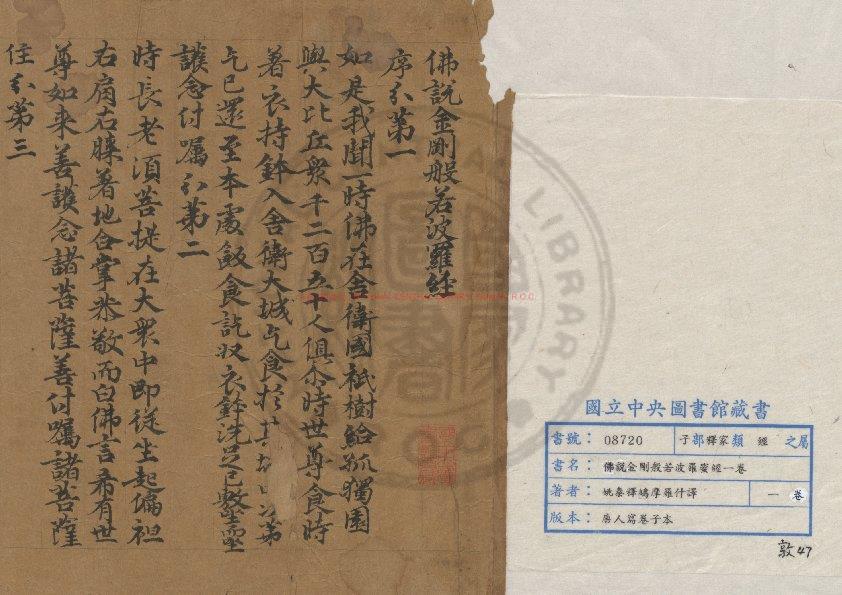 佛說金剛般若波羅經
序分第一
如是我聞一時佛在舍衛國祇樹給孤獨園
與大比丘眾千二百五十人俱尒時世尊食時
著衣持鉢入舍衛大城乞食於其城第
乞已還至本處飯食訖収衣鉢洗足已敷座
護念付囑分第二
時長老須菩提在大眾中即從坐起偏袒
右肩右膝著地合掌恭敬而白佛言希有世
尊如来善護念諸菩薩善付囑諸菩薩
住分第三
國立中央圖書館藏書
書號：08720 子部釋家類 經 之屬
書名：佛說金剛般若波羅蜜經一卷
著者：姚秦釋鳩摩羅什譯 一卷
版本：唐人寫卷子本
敦47
LIBRARY